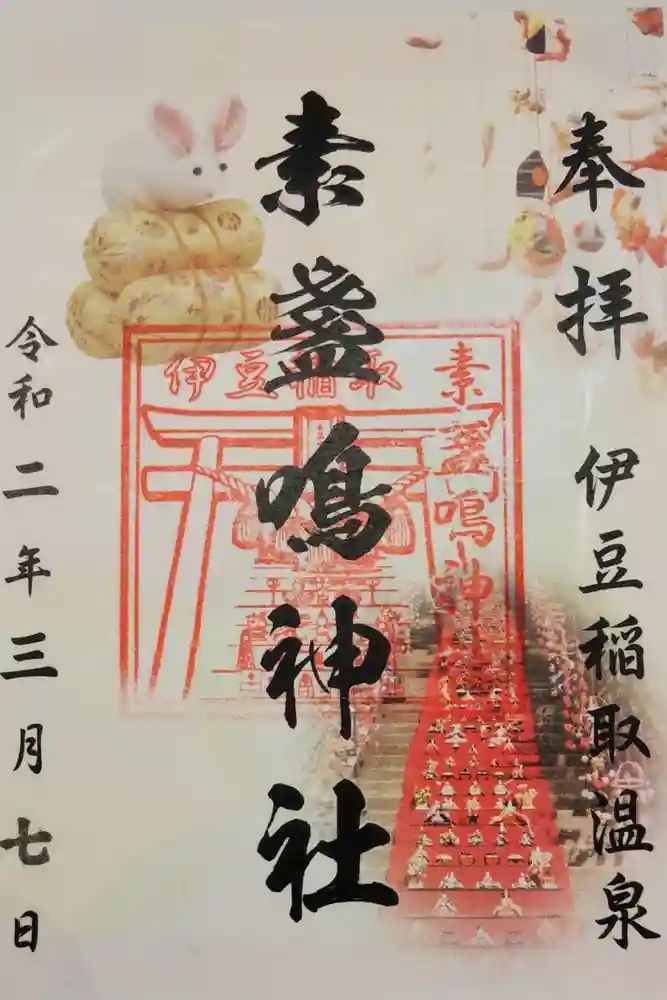 奉拝　伊豆稲取温泉
素盞鳴神社
令和二年三月七日
伊豆稲取
素盞鳴神